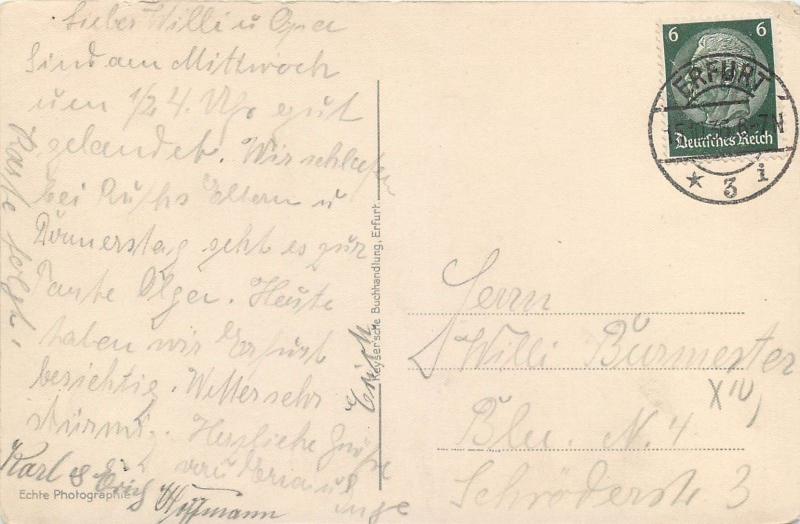 Lieber Willi u Opa
Sind am Mittwoch
um 1/2 4. Uhr gut
gelandet. Wir schliefen
bei Ruths Eltern u
Donnerstag geht es zur
Tante Olga. Heute
haben wir Erfurt
besichtig. Wetter sehr
stürmi. Herzliche Grüße
von Maria u
Inge
Karl & Erich Hoffmann
Karte folgt.
Erich
Echte Photographie
Keyser'sche Buchhandlung, Erfurt.
6 6
Deutsches Reich
ERFURT
* 3 i
Herrn
Willi Burmester
XIV
Bln. N. 4
Schröderstr 3